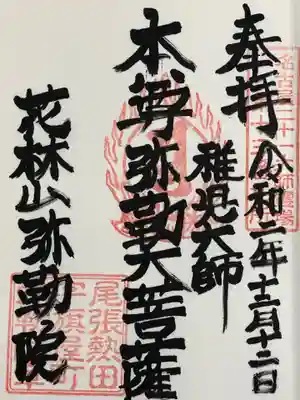 奉拝
令和二年十二月十二日
稚児大師
本尊弥勒大菩薩
花林山弥勒院
尾張熱田
字旗屋町